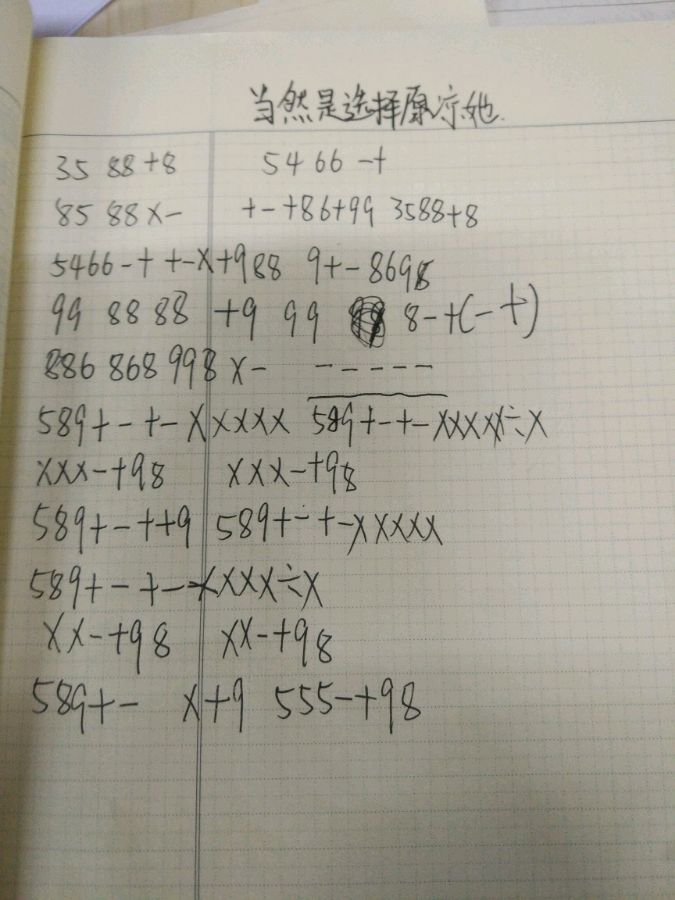 当然是选择原谅她
3588+8 5466-+
8588x- +-+86+99 3588+8
5466-++-x+988 9+-8698
99 8888 +9 99 8-+(-+)
886 868 998 x- -----
589+-+-xxxxx 589+-+-xxxxx÷x
xxx-+98 xxx-+98
589+-++9 589+-+-xxxxx
589+-+-xxxxx÷x
xx-+98 xx-+98
589+- x+9 555-+98